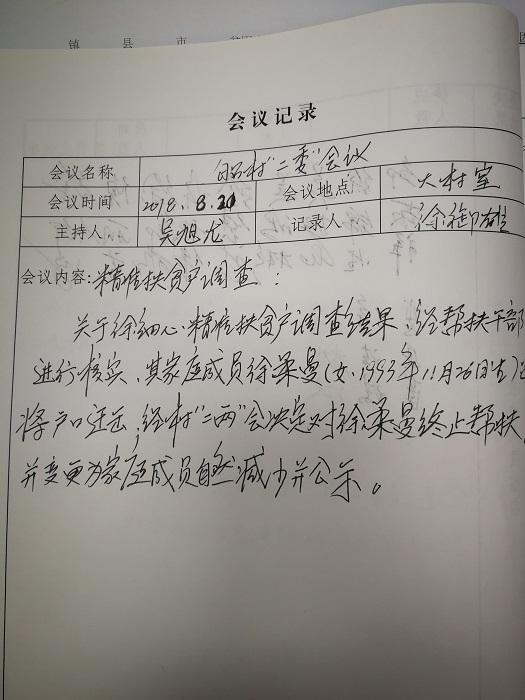 镇 县 市
会议记录
会议名称 昭村“二委”会议
会议时间 2018.8.20 会议地点 大村室
主持人 吴旭龙 记录人 徐御雄
会议内容:精准扶贫户调查:
关于徐细心精准扶贫户调查结果,经帮扶干部
进行核实、其家庭成员徐柔曼(女、1993年11月26日生)已
将户口迁出,经村“二两”会决定对徐柔曼终止帮扶,
并变更为家庭成员自然减少并公示。